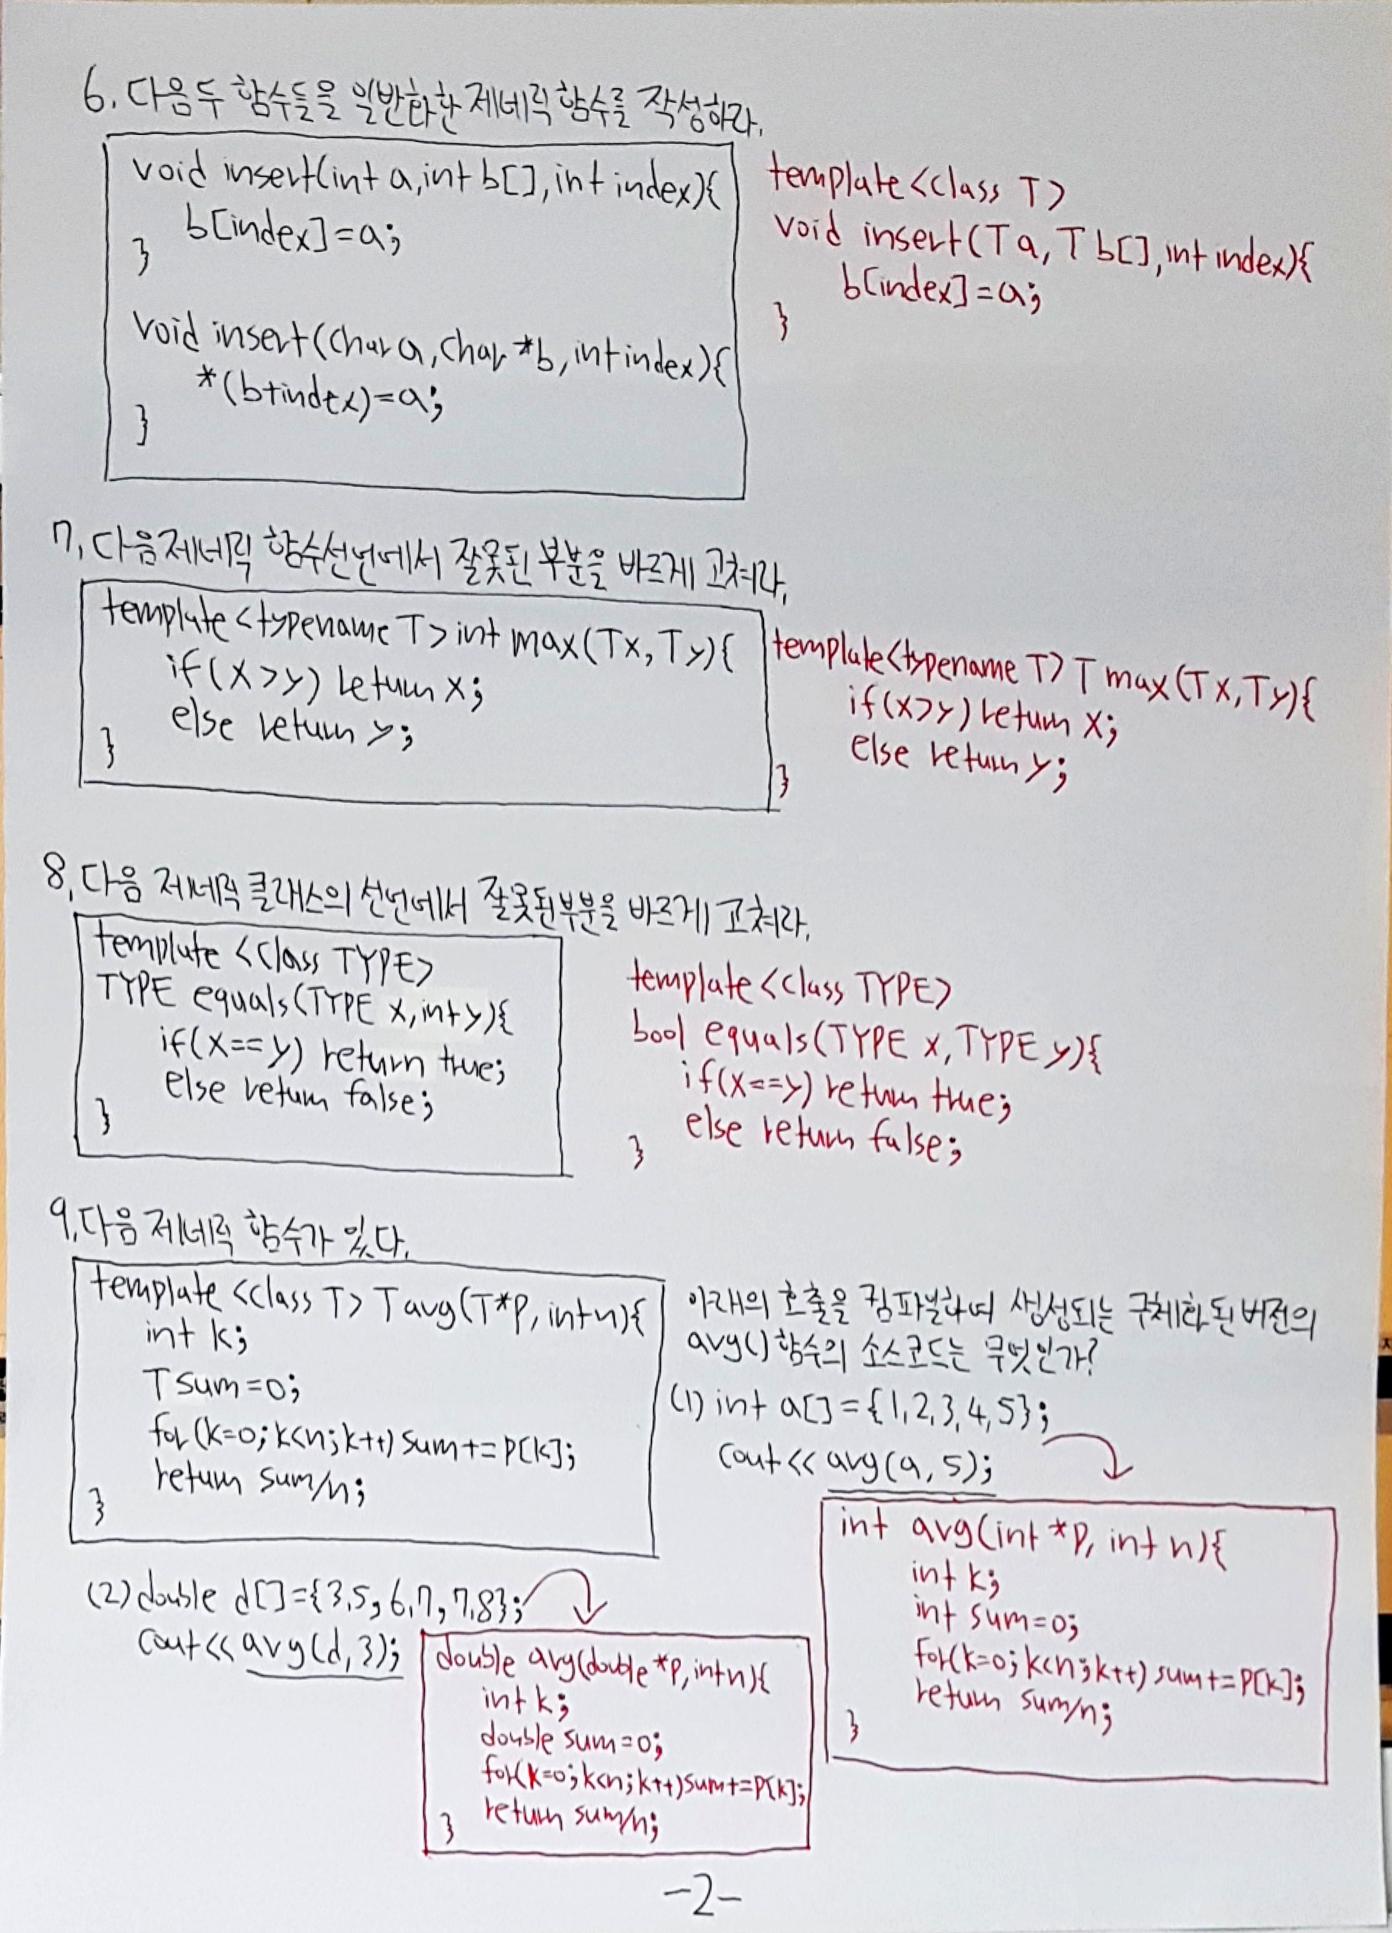 6. 다음 두 함수들을 일반화한 제네릭 함수를 작성하라.
void insert(int a, int b[], int index){
b[index]=a;
}
void insert(char a, char *b, int index){
*(b+index)=a;
}
template<class T>
void insert(T a, T b[], int index){
b[index]=a;
}
7. 다음 제네릭 함수 선언에서 잘못된 부분을 바르게 고쳐라.
template<typename T> int max(T x, T y){
if(x>y) return x;
else return y;
}
template<typename T> T max(T x, T y){
if(x>y) return x;
else return y;
}
8. 다음 제네릭 클래스의 선언에서 잘못된 부분을 바르게 고쳐라.
template <class TYPE>
TYPE equals(TYPE x, int y){
if(x==y) return true;
else return false;
}
template<class TYPE>
bool equals(TYPE x, TYPE y){
if(x==y) return true;
else return false;
}
9. 다음 제네릭 함수가 있다.
template <class T> T avg(T*p, int n){
int k;
T sum=0;
for(k=0; k<n; k++) sum+=p[k];
return sum/n;
}
아래의 호출을 컴파일하여 생성되는 구체화 된 버전의
avg() 함수의 소스코드는 무엇인가?
(1) int a[]={1,2,3,4,5};
cout<<avg(a,5);
int avg(int *p, int n){
int k;
int sum=0;
for(k=0; k<n; k++) sum+=p[k];
return sum/n;
}
(2) double d[]={3.5, 6.7, 7.8};
cout<<avg(d,3);
double avg(double *p, int n){
int k;
double sum=0;
for(k=0; k<n; k++) sum+=p[k];
return sum/n;
}
-2-